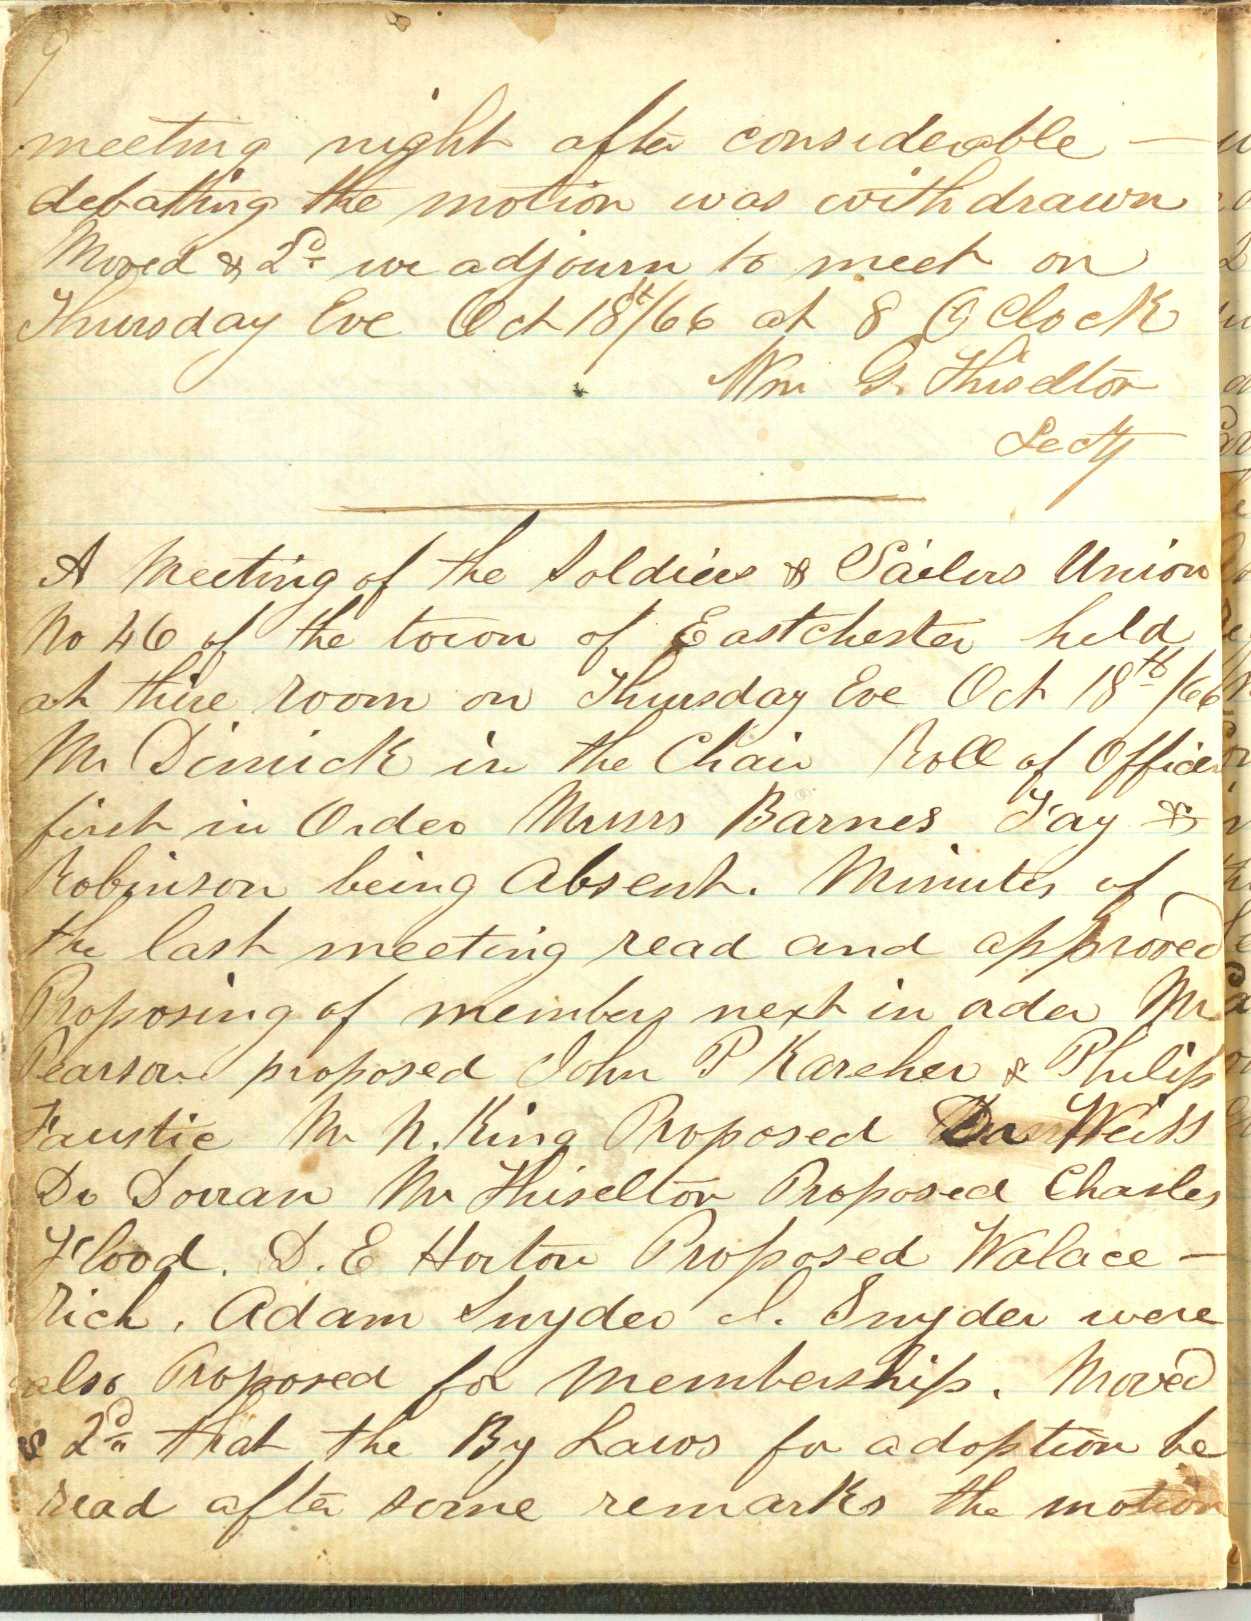 9
meeting night after considerable —
debatting the motion was withdrawn
Moved & 2d we adjourn to meet on
Thursday Eve Oct 18th/66 at 8 O Clock
Wm G. Thiselton
Secty
A Meeting of the Soldiers & Sailers Union
No 46 of the town of Eastchester held
at thire room on Thursday Eve Oct 18th/66
Mr Dimick in the Chair Roll of Officers
first in Order Messrs Barnes Fay &
Robinson being Absent. Minutes of
the last meeting read and approved
Proposing of members next in order Mr
Pearson proposed John P Karcher & Philip
Faustie Mr N. King Proposed Dr Weiss
Dr Dorran Mr Thiselton Proposed Charles
Flood. D. E Horton Proposed Walace —
Rich. Adam Snyder I. Snyder were
also Proposed for Membership. Moved
& 2d that the By Laws for adoption be
read after some remarks the motion